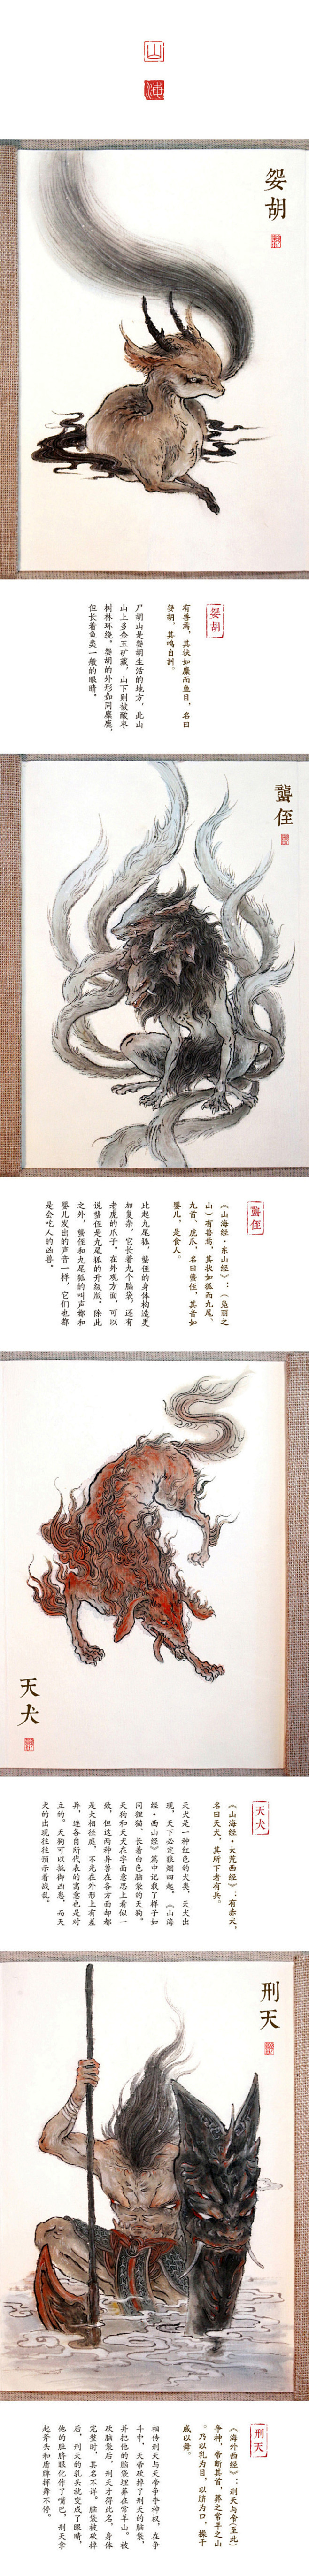 山
海
妴胡
妴胡
有兽焉，其状如麋而鱼目，名曰
妴胡，其鸣自訓。
尸胡山是妴胡生活的地方，此山
山上多金玉矿藏，山下则被酸枣
树林环绕。妴胡的外形如同麋鹿，
但长着鱼类一般的眼睛。
蠪侄
蠪侄
《山海经·东山经》：（凫丽之
山）有兽焉，其状如狐而九尾、
九首、虎爪，名曰蠪侄，其音如
婴儿，是食人。
比起九尾狐，蠪侄的身体构造更
加复杂，它长着九个脑袋，还有
老虎的爪子。在外观方面，可以
说蠪侄是九尾狐的升级版。除此
之外，蠪侄和九尾狐的叫声都和
婴儿发出的声音一样，它们也都
是会吃人的凶兽。
天犬
天犬
《山海经·大荒西经》：有赤犬，
名曰天犬，其所下者有兵。
天犬是一种红色的犬类，天犬出
现，天下必定狼烟四起。《山海
经·西山经》篇中记载了样子如
同狸猫、长着白色脑袋的天狗。
天狗和天犬在字面意思上看似一
致，但这两种异兽在各方面却都
是大相径庭，不光在外形上有差
异，连各自所代表的寓意也是对
立的。天狗可以抵御凶恶，而天
犬的出现往往预示着战乱。
刑天
刑天
《海外西经》：刑天与帝(至此)
争神，帝断其首，葬之常羊之山
。乃以乳为目，以脐为口，操干
戚以舞。
相传刑天与天帝争夺神权，在争
斗中，天帝砍掉了刑天的脑袋，
并把他的脑袋埋葬在常羊山。被
砍脑袋后，刑天才得此名，身体
完整时，其名不详。脑袋被砍掉
后，刑天的乳头就变成了眼睛，
他的肚脐眼化作了嘴巴，刑天拿
起斧头和盾牌挥舞不停。